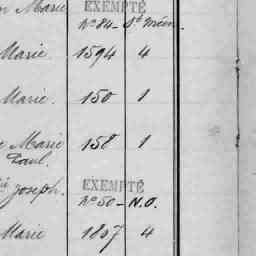 Marie EXEMPTÉ
No 84 - St Méen.
Marie. 1594 4
Marie. 150 1
Marie 158 1
Paul.
Joseph. EXEMPTÉ
No 50 - N.O.
Marie 1807 4